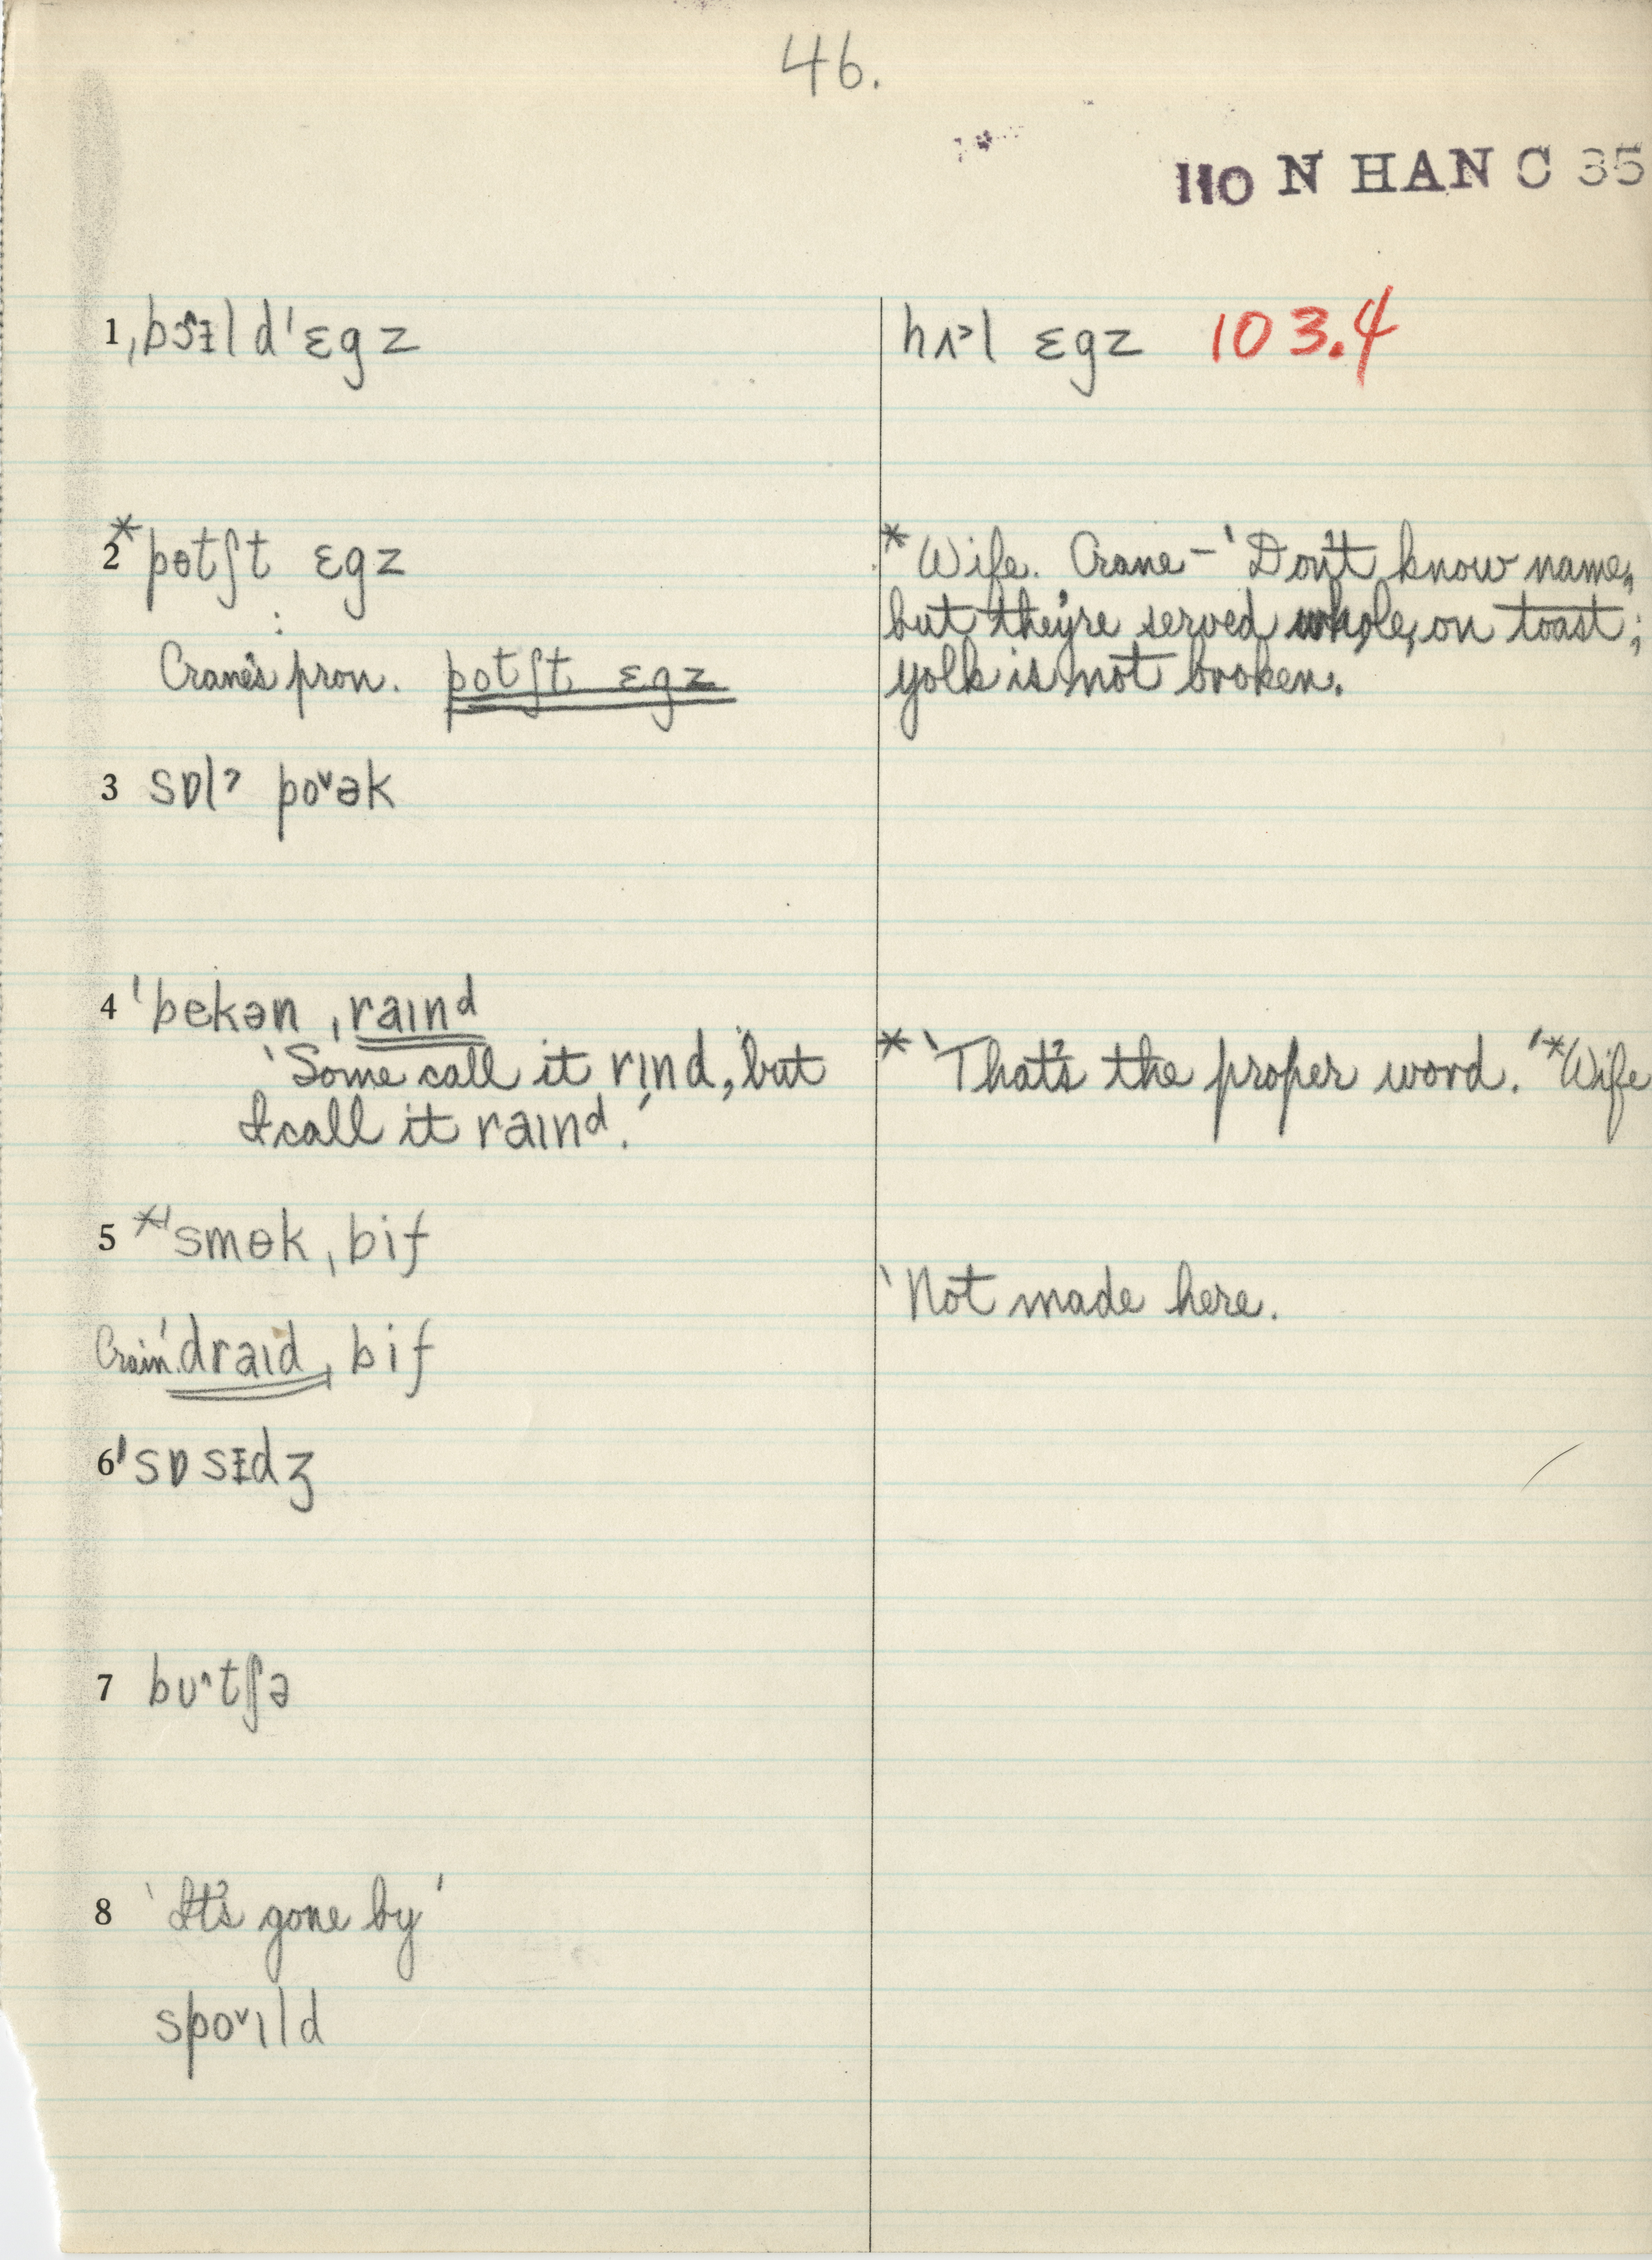 46.
110 N HAN C 35
1 ˌbɔᵻld ˈɛgz
hʌ˃l ɛgz 103.4
2 * pɵtʃt ɛgz
* Wife. Crane – 'Don't know name,
but they're served whole, on toast;
yolk is not broken.
Crane's pron. potʃt ɛgz
3 sɒlˀ po˅ək
4 ˈbekən ˌraɪnd
'Some call it rɪnd, but
I call it raɪnd.'
* 'That's the proper word.' *Wife
5 *ˈsmɵk ˌbif
'Not made here.
ˈdraɪd ˌbif
6 ˈsɒsᵻdʒ
7 bʊ^tʃə
8 'It's gone by'
spo˅ɪld